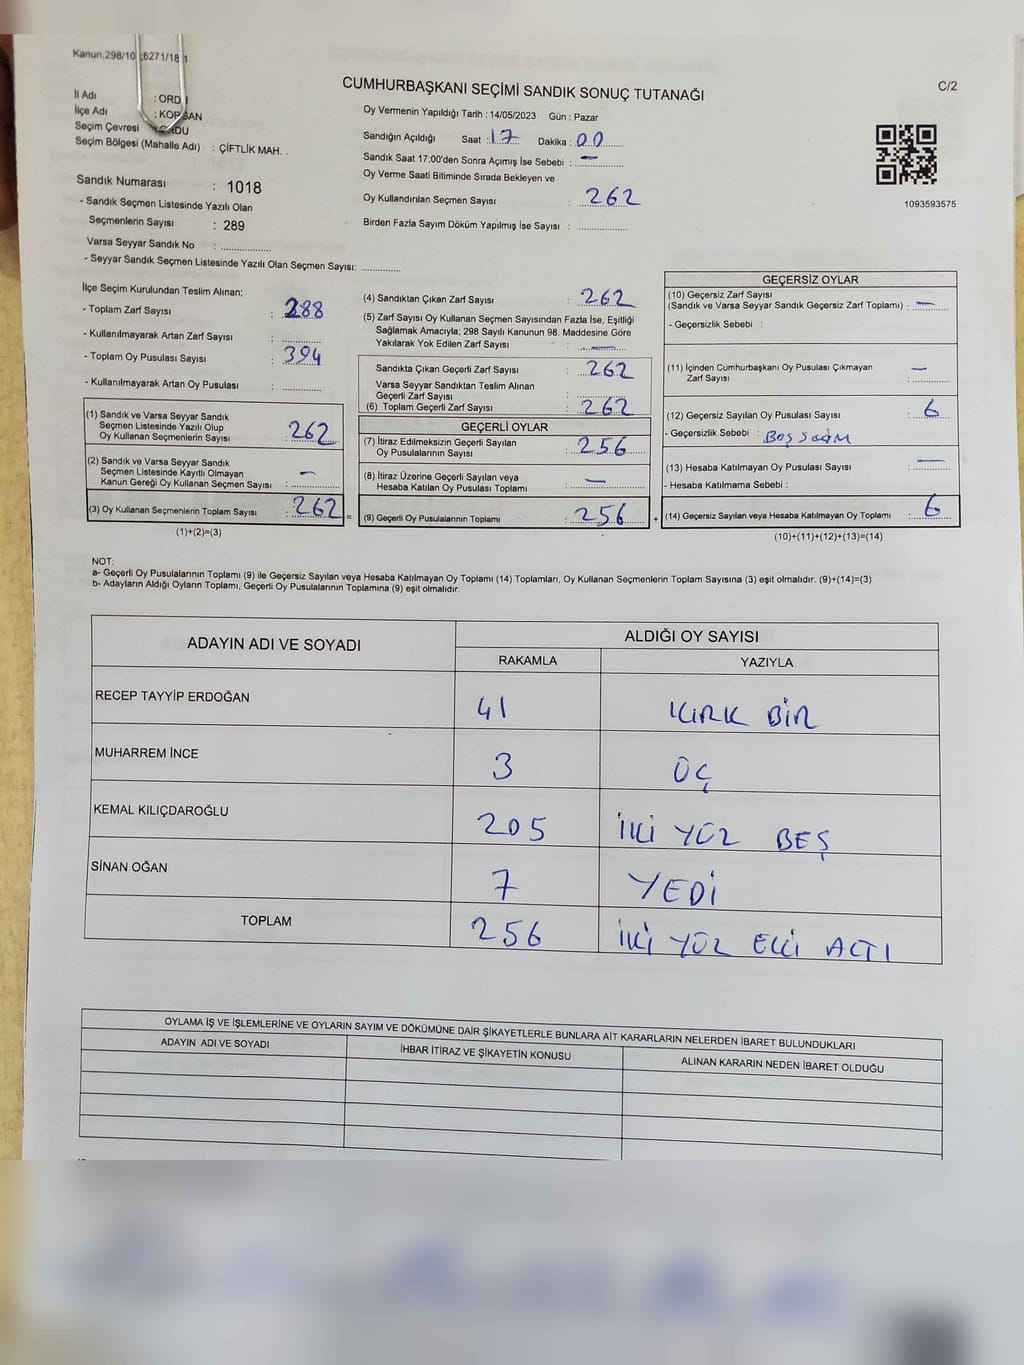 Kanun:298/10 6271/18 1
C/2
CUMHURBAŞKANI SEÇİMİ SANDIK SONUÇ TUTANAĞI
İl Adı : ORD
İlçe Adı : KOR AN
Seçim Çevresi DU
Seçim Bölgesi (Mahalle Adı) : ÇİFTLİK MAH.
Sandık Numarası : 1018
- Sandık Seçmen Listesinde Yazılı Olan
Seçmenlerin Sayısı : 289
Varsa Seyyar Sandık No : ..............
- Seyyar Sandık Seçmen Listesinde Yazılı Olan Seçmen Sayısı: ............
Oy Vermenin Yapıldığı Tarih : 14/05/2023 Gün : Pazar
Sandığın Açıldığı Saat : 17 Dakika : 00
Sandık Saat 17:00'den Sonra Açımış İse Sebebi : —
Oy Verme Saati Bitiminde Sırada Bekleyen ve
Oy Kullandırılan Seçmen Sayısı : 262
Birden Fazla Sayım Döküm Yapılmış İse Sayısı : ..............
1093593575
İlçe Seçim Kurulundan Teslim Alınan;
- Toplam Zarf Sayısı : 288
- Kullanılmayarak Artan Zarf Sayısı : ............
- Toplam Oy Pusulası Sayısı : 394
- Kullanılmayarak Artan Oy Pusulası : ............
(1) Sandık ve Varsa Seyyar Sandık
Seçmen Listesinde Yazılı Olup
Oy Kullanan Seçmenlerin Sayısı : 262
(2) Sandık ve Varsa Seyyar Sandık
Seçmen Listesinde Kayıtlı Olmayan
Kanun Gereği Oy Kullanan Seçmen Sayısı : —
(3) Oy Kullanan Seçmenlerin Toplam Sayısı : 262 =
(1)+(2)=(3)
(4) Sandıktan Çıkan Zarf Sayısı : 262
(5) Zarf Sayısı Oy Kullanan Seçmen Sayısından Fazla İse, Eşitliği
Sağlamak Amacıyla; 298 Sayılı Kanunun 98. Maddesine Göre
Yakılarak Yok Edilen Zarf Sayısı : —
Sandıkta Çıkan Geçerli Zarf Sayısı : 262
Varsa Seyyar Sandıktan Teslim Alınan
Geçerli Zarf Sayısı : ............
(6) Toplam Geçerli Zarf Sayısı : 262
GEÇERLİ OYLAR
(7) İtiraz Edilmeksizin Geçerli Sayılan
Oy Pusulalarının Sayısı : 256
(8) İtiraz Üzerine Geçerli Sayılan veya
Hesaba Katılan Oy Pusulası Toplamı : —
(9) Geçerli Oy Pusulalarının Toplamı : 256 +
GEÇERSİZ OYLAR
(10) Geçersiz Zarf Sayısı
(Sandık ve Varsa Seyyar Sandık Geçersiz Zarf Toplamı) : —
- Geçersizlik Sebebi :
(11) İçinden Cumhurbaşkanı Oy Pusulası Çıkmayan
Zarf Sayısı : —
(12) Geçersiz Sayılan Oy Pusulası Sayısı : 6
- Geçersizlik Sebebi : BOŞ
(13) Hesaba Katılmayan Oy Pusulası Sayısı : —
- Hesaba Katılmama Sebebi :
(14) Geçersiz Sayılan veya Hesaba Katılmayan Oy Toplamı : 6
(10)+(11)+(12)+(13)=(14)
NOT:
a- Geçerli Oy Pusulalarının Toplamı (9) ile Geçersiz Sayılan veya Hesaba Katılmayan Oy Toplamı (14) Toplamları, Oy Kullanan Seçmenlerin Toplam Sayısına (3) eşit olmalıdır. (9)+(14)=(3)
b- Adayların Aldığı Oyların Toplamı, Geçerli Oy Pusulalarının Toplamına (9) eşit olmalıdır.
ADAYIN ADI VE SOYADI ALDIĞI OY SAYISI
RAKAMLA YAZIYLA
RECEP TAYYİP ERDOĞAN 41 KIRK BİR
MUHARREM İNCE 3 ÜÇ
KEMAL KILIÇDAROĞLU 205 İKİ YÜZ BEŞ
SİNAN OĞAN 7 YEDİ
TOPLAM 256 İKİ YÜZ ELLİ ALTI
OYLAMA İŞ VE İŞLEMLERİNE VE OYLARIN SAYIM VE DÖKÜMÜNE DAİR ŞİKAYETLERLE BUNLARA AİT KARARLARIN NELERDEN İBARET BULUNDUKLARI
ADAYIN ADI VE SOYADI İHBAR İTİRAZ VE ŞİKAYETİN KONUSU ALINAN KARARIN NEDEN İBARET OLDUĞU